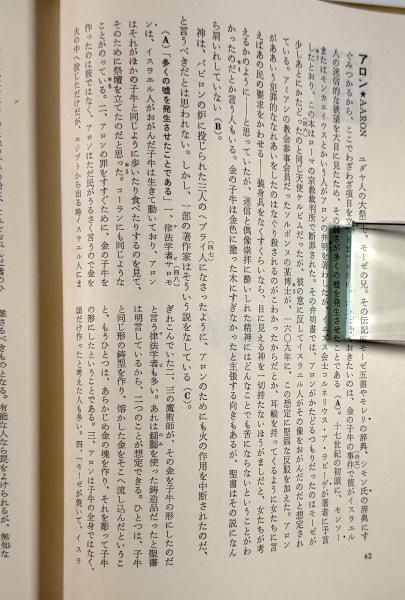 62
アロン★AARON　ユダヤ人の大祭司で、モーゼの兄。その伝記はモーゼ五書やモレリの辞典、シモン氏の辞典にす
ぐみつかるから、ここでわざわざ項目を おきたいのは、金の子牛の事件で彼がイスラエル
人の迷信的な欲望を大目に見たため、その が多くの嘘を発生させたことである（A）。十七世紀の初頭に、モンソー
またはモンカエイウスとかいう人がアロンの弁明を著わしたが、イエズス会士コルネリウス・ア・ラピーデが著者に予言
しだとおり、この本はローマの宗教裁判所で断罪された。その弁明書では、アロンがかたどるつもりだったのはモーゼが
少しあとにかたどったのと同じ天使ケルビムだったが、彼の意に反してイスラエル人がその像をおがんだのだと想定され
ている。アミアンの教会参事会員だったソルボンヌの某博士が、一六〇九年に、この想定に堅固な反駁を加えた。アロン
がああいう犯罪的ななれあいをしたのはなぐり殺されるのがこわかったからだとか、耳輪を持ってくるように女たちに言
えばあの民の要求をかわせる――装身具をなくすぐらいなら、目に見える神を一切持たないほうがましだと、女たちが考
えるかのように――と思っていたが、迷信と偶像崇拝に酔いしれた精神にはどんなことでも苦にならないということがわ
かったのだとか言う人もいる。金の子牛は金色に塗った木にすぎなかったと主張する向きもあるが、聖書はその説になん
ら肩いれしていない（B）。
神は、バビロンの炉に投じられた三人のヘブライ人になさったように、アロンのためにも火の作用を中断されたのだ、
と言うべきだとは思われない。しかし、一部の著作家はそういう説をなしている（C）。
（A）「多くの嘘を発生させたことである」　一、律法学者サロモ
ンは、イスラエル人がおがんだ子牛は生きて動いており、アロン
はそれがほかの子牛と同じように歩いたり食べたりするのを見て、
そのために祭壇を立てたのだと思った。コーランにも同じような
ことがのっている。二、アロンの罪をすすぐために、金の子牛を
作ったのは彼ではなく、アロンはただ民がうるさく言うので金を
火の中へ投じただけだが、エジプトから出る時イスラエル人にま
ぎれこんでいた二、三の魔術師が、その金を子牛の形にしたのだ
と言う律法学者も多い。あれは鋳型を使った鋳造品だったと聖書
は明言しているから、二つのことが想定できる。ひとつは、子牛
と同じ形の鋳型を作り、熔かした金をそこへ流し込んだというこ
と、もうひとつは、あらかじめ金の塊を作り、それを彫って子牛
の形にしたということである。三、アロンは子牛の全身ではなく、
頭だけ作ったと考えた人も多い。四、「モーゼが焼いて、イスラ